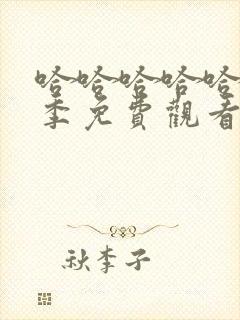 哈哈哈哈哈
季免費觀看
秋李子